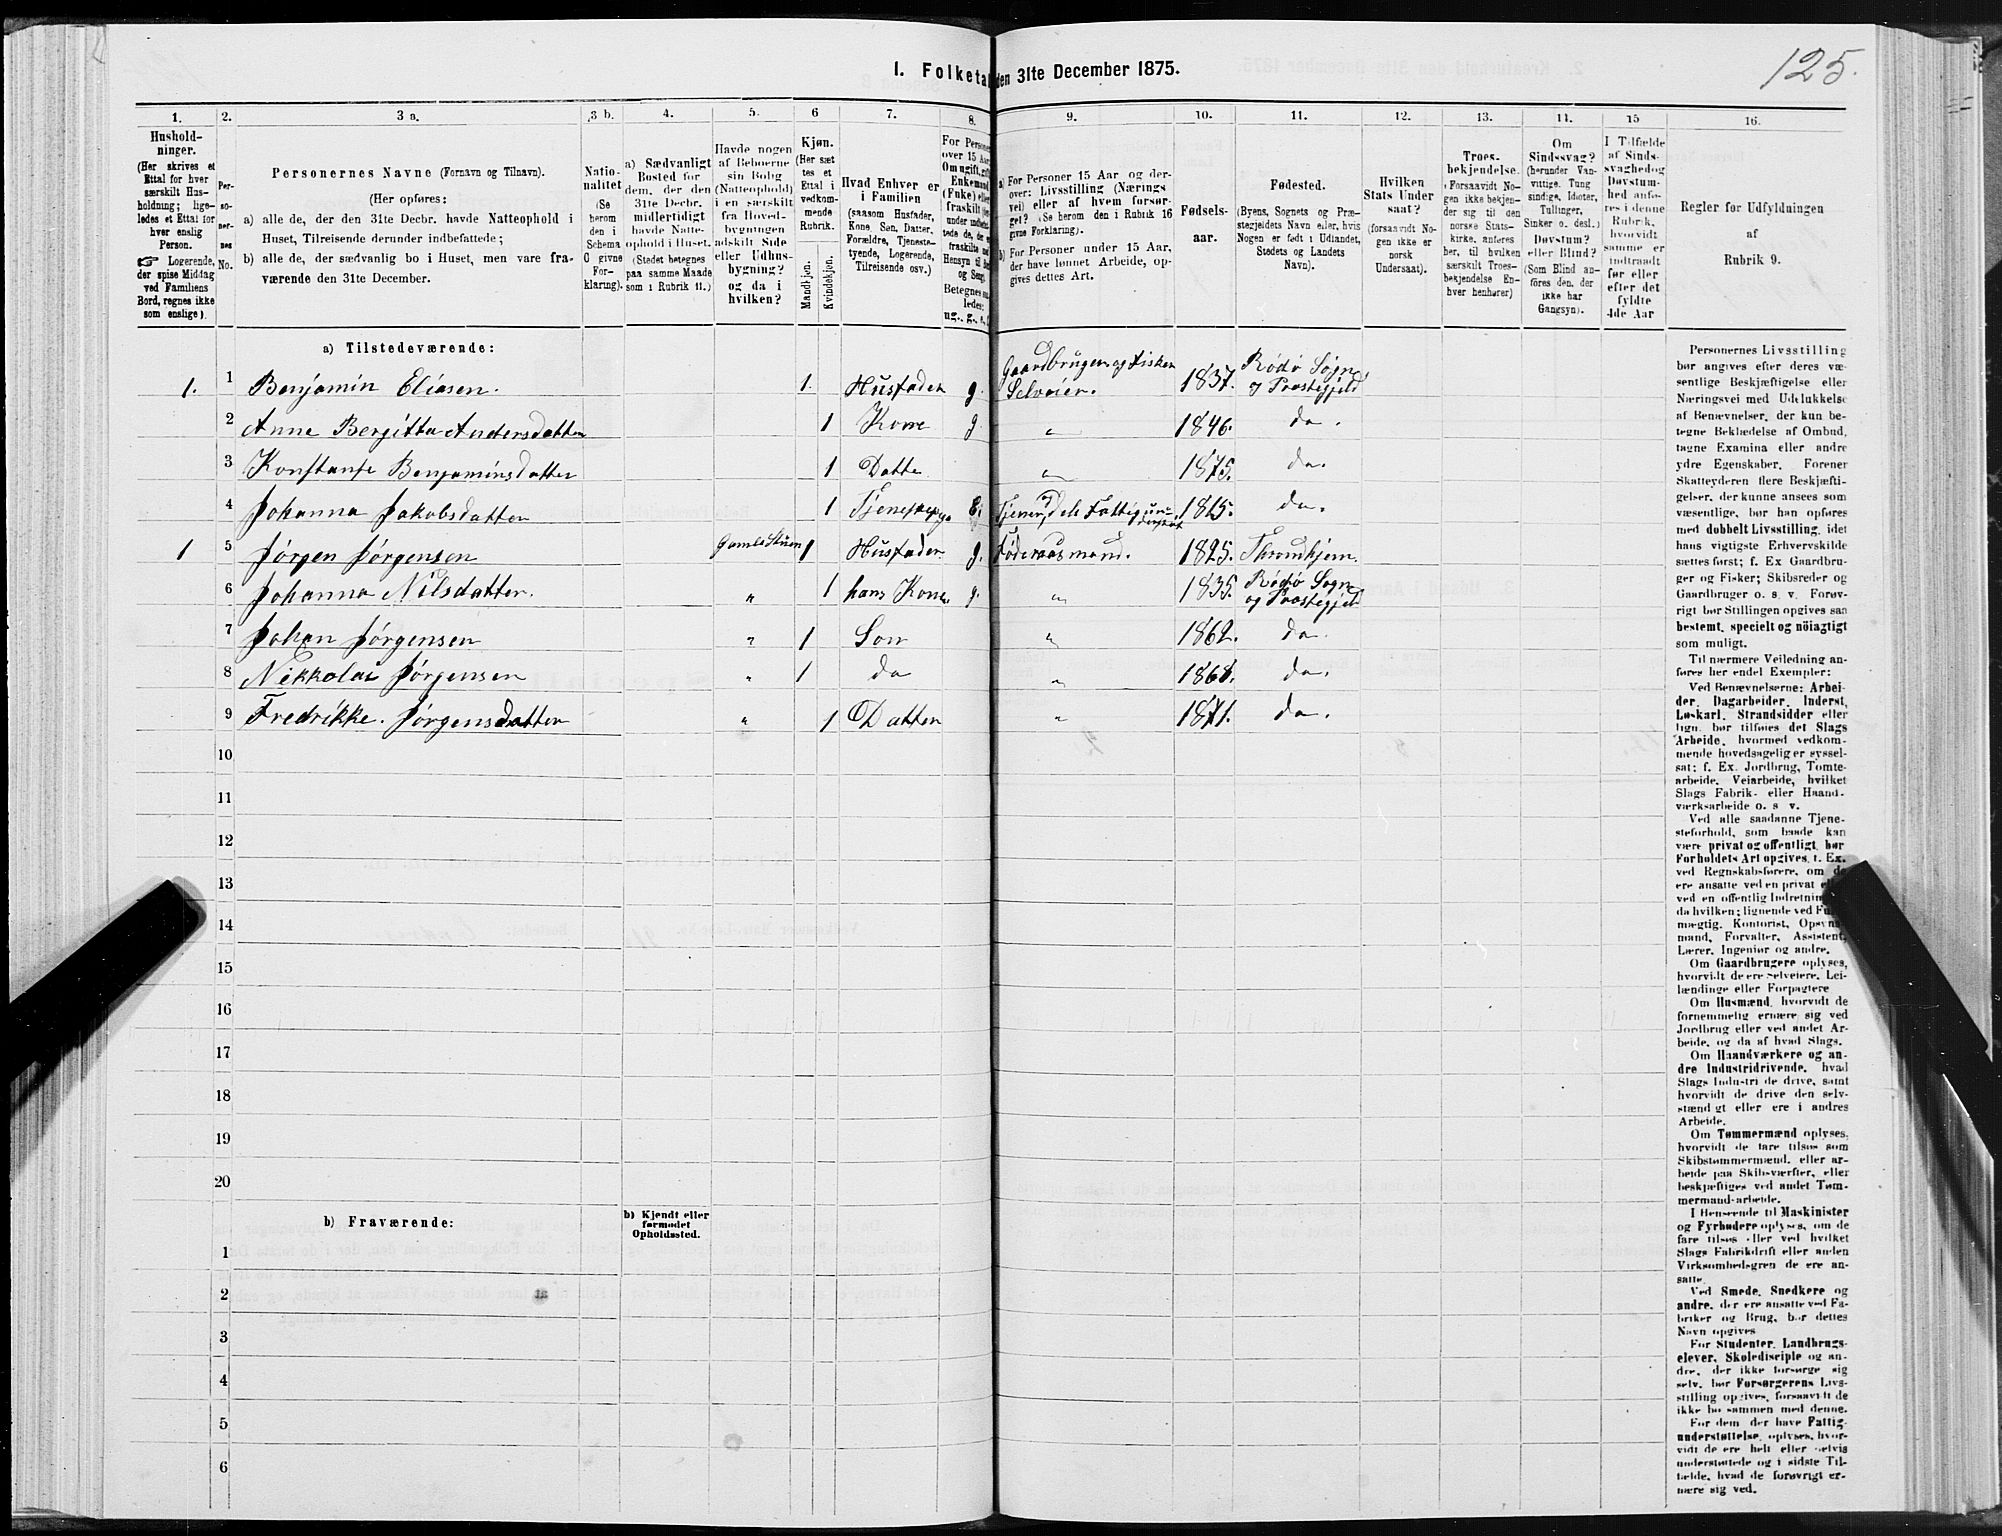 1. Folketal den 31te December 1875.
125.
1.
Hushold-
ninger.
(Her skrives et
Ettal for hver
særskilt Hus-
holdning; lige-
ledes et Ettal for
hver enslig
Person.
☞ Logerende,
der spise Middag
ved Familiens
Bord, regnes ikke
som enslige).
2.
Per-
so-
ner-
nes
No.
3 a.
Personernes Navne (Fornavn og Tilnavn).
(Her opføres:
a) alle de, der den 31te Decbr. havde Natteophold i
Huset, Tilreisende derunder indbefattede;
b) alle de, der sædvanlig bo i Huset, men vare fra-
værende den 31te December.
3 b.
Natio-
nalitet
(Se
herom
den i
Schema
C givne
For-
klaring).
4.
a) Sædvanligt
Bosted for
dem, der den
31te Decbr.
midlertidigt
havde Natte-
ophold i Huset.
(Stedet betegnes
paa samme Maade
som i Rubrik 11.)
5.
Havde nogen
af Beboerne
sin Bolig
(Natteophold)
i en særskilt
fra Hoved-
bygningen
adskilt Side
eller Udhus-
bygning?
og da i
hvilken?
6
Kjøn.
(Her sæt
tes et
Ettal i
vedkom-
mende
Rubrik.
Mandkjøn.
Kvindekjøn.
7.
Hvad Enhver er
i Familien
(saasom Husfader,
Kone, Søn, Datter,
Forældre, Tjeneste-
tyende, Logerende,
Tilreisende osv.)
8.
For Personer
over 15 Aar:
Om ugift, gift,
Enkemand
(Enke) eller
fraskilt
9.
a) For Personer 15 Aar og der-
over: Livsstilling (Nærings
vei) eller af hvem forsør-
get? (Se herom den i Rubrik 16
givne Forklaring).
b) For Personer under 15 Aar,
der have lønnet Arbeide, op-
gives dettes Art.
10.
Fødsels-
aar.
11.
Fødested.
(Byens, Sognets og Præ-
stegjeldets Navn eller, hvis
Nogen er født i Udlandet,
Stedets og Landets
Navn).
12.
Hvilken
Stats Under
saat?
(forsaavidt No-
gen ikke er
norsk
Undersaat).
13.
Troes-
bekjendelse.
(Forsaavidt No-
gen ikke bekjen-
der sig til den
norske Stats-
kirke, anføres
her, til hvilken
særskilt Troes-
bekjendelse En-
hver henhører)
14.
Om
Sindssvag?
(herunder Van-
vittige, Tung
sindige, Idioter,
Tullinger,
Sinker o. desl.)
Døvstum?
eller Blind?
(Som Blind an-
føres den, der
ikke har
Gangsyn).
15
I Tilfælde
af Sinds-
svaghed og
Døvstum-
hed anfø-
res i denne
Rubrik,
hvorvidt
samme er
indtraadt
før eller
efter det
fyldte
4de Aar
16.
Regler for Udfyldningen
af
Rubrik 9.
a) Tilstedeværende:
1. 1 Benjamin Eliasen. 1. Husfader g. Gaardbruger og Fisker Selveier. 1837. Rødø Sogn og Præstegjeld
2 Anne Bergitta Andersdatter 1 Kone g. " 1846. do.
3 Konstanse Benjaminsdatter 1 Datter " 1875. do.
4 Johanna Jakobsdatter 1 Tjenestepige E. Tjener, dels Fattigunderstøt 1815. do.
1 5 Jørgen Jørgensen Gamle Stuen 1 Husfader g. Føderaadsmand. 1825. Throndhjem.
6 Johanna Nilsdatter. " 1 hans Kone. g. " 1835. Rødø Sogn og Præstegjeld
7 Johan Jørgensen " 1 Søn " 1862. do.
8 Nikkolai Jørgensen " 1 do " 1868. do.
9 Fredrikke. Jørgensdatter " 1 Datter " 1871. do.
10
11
12
13
14
15
16
17
18
19
20
b) Fraværende:
b) Kjendt eller
formodet
Opholdssted.
1
2
3
4
5
6
Personernes Livsstilling
bør angives efter deres væ-
sentlige Beskjæftigelse eller
Næringsvei med Udelukkelse
af Benævnelser, der kun be-
tegne Beklædelse af Ombud,
tagne Examina eller andre
ydre Egenskaber. Forener
Skatteyderen flere Beskjæfti-
gelser, der kunne ansees som
væsentlige, bør han opføres
med dobbelt Livsstilling, idet
hans vigtigste Erhvervskilde
sættes først; f. Ex Gaardbru-
ger og Fisker; Skibsreder og
Gaardbruger o. s. v. Forøv-
rigt bør Stillingen opgives saa
bestemt, specielt og nöiagtigt
som muligt.
Til nærmere Veiledning an-
føres her endel Exempler:
Ved Benævnelserne: Arbei-
der, Dagarbeider, Inderst,
Løskarl, Strandsidder eller
lign. bør tilføies det Slags
Arbeide, hvormed vedkom-
mende hovedsagelig er syssel-
sat; f. Ex. Jordbrug, Tomte-
arbeide, Veiarbeide, hvilket
Slags Fabrik- eller Haand-
værksarbeide o. s v.
Ved alle saadanne Tjene-
steforhold, som baade kan
være privat og offentligt, bør
Forholdets Art opgives, t. Ex.
ved Regnskabsførere, om de
ere ansatte ved en privat
ved en offentlig Indretning
da hvilken; lignende ved
mægtig, Kontorist, Opsyns
mand, Forvalter, Assistent,
Lærer, Ingeniør og andre.
Om Gaardbrugere oplyses,
hvorvidt de ere Selveiere, Lei-
lændinge eller Forpagtere
Om Husmænd, hvorvidt de
fornemmelig ernære sig ved
Jordbrug eller ved andet Ar-
beide, og da af hvad Slags.
Om Haandværkere og an-
dre Industridrivende, hvad
Slags Industri de drive, samt
hvorvidt de drive den selv-
stændigt eller ere i andres
Arbeide.
Om Tømmermænd oplyses,
hvorvidt de fare tilsøs som
Skibstømmermænd, eller ar-
beide paa Skibsværfter, eller
beskjæftiges ved andet Tøm-
mermandsarbeide.
I Henseende til Maskinister
og Fyrbødere oplyses, om de
fare tilsøs eller ved hvilket
Slags Fabrikdrift eller anden
Virksomhedsgren de ere an-
satte.
Ved Smede, Snedkere og
andre, der ere ansatte ved Fa-
briker og Brug, bør dettes
Navn opgives
For Studenter, Landbrugs-
elever, Skoledisciple og an-
dre, der ikke forsørge sig
selv, bør Forsørgerens Livs-
stilling opgives, forsaavidt de
ikke bo sammen med denne.
For dem, der have Fattig-
understøttelse, oplyses, hvor-
vidt de ere helt eller delvis
understøttede og i sidste Til-
fælde, hvad de forøvrigt er-
nære sig ved.